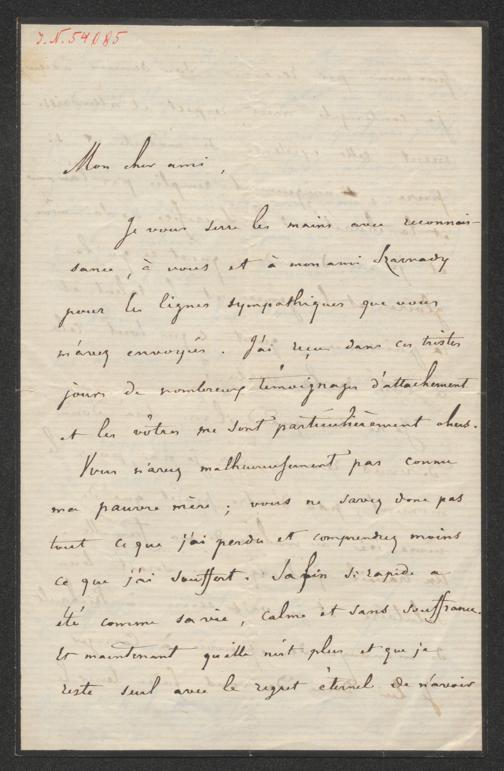 J.N. 54085
Mon cher ami,
Je vous serre les mains avec reconnais-
sance, à vous et à mon ami Szarvady
pour les lignes sympathiques que vous
m'avez envoyés. J'ai reçu dans ces tristes
jours de nombreux témoignages d'attachement
et les vôtres me sont particulièrement chers.
Vous n'avez malheureusement pas connu
ma pauvre mère; vous ne savez donc pas
tout ce que j'ai perdu et comprendrez moins
ce que j'ai souffert. Sa fin si rapide a
été comme sa vie, calme et sans souffrance.
Et maintenant qu'elle n'est plus et que je
reste seul avec le regret éternel de n'avoir